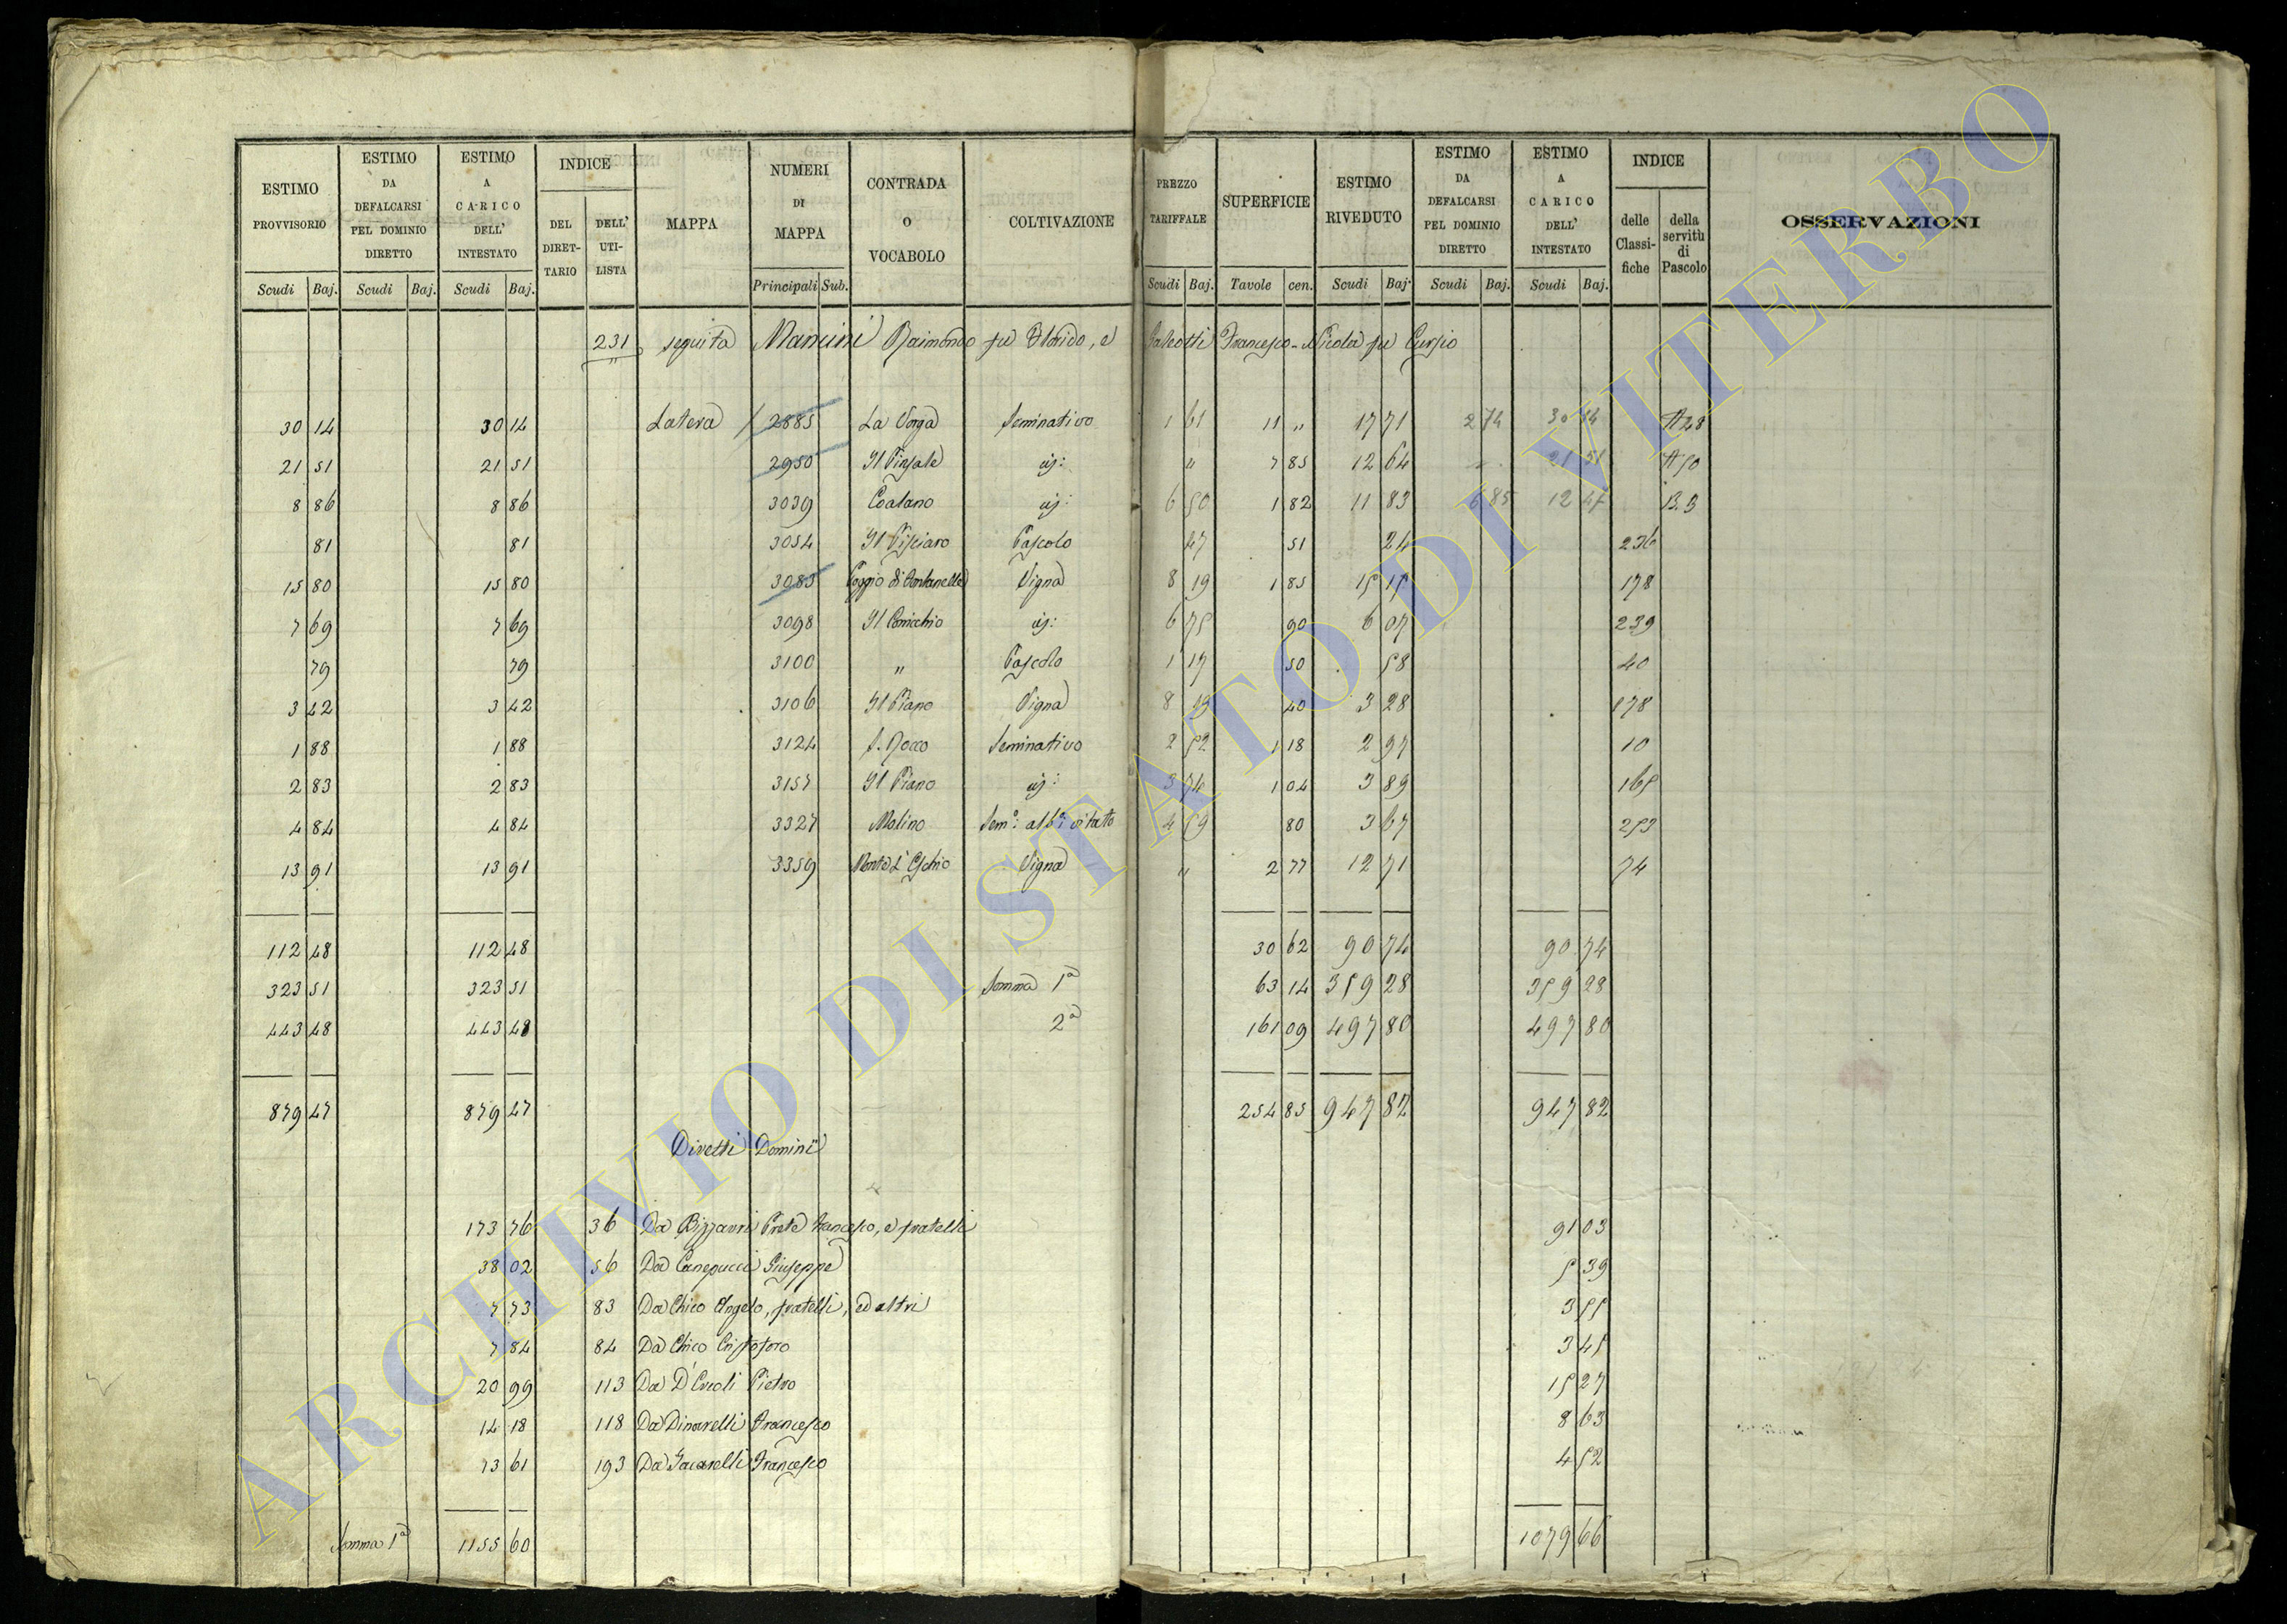 ESTIMO PROVVISORIO | ESTIMO DA DEFALCARSI PEL DOMINIO DIRETTO | ESTIMO A CARICO DELL' INTESTATO | INDICE DEL DIRETTARIO | DELL' UTILISTA | MAPPA | NUMERI DI MAPPA | CONTRADA O VOCABOLO | COLTIVAZIONE | PREZZO TARIFFALE | SUPERFICIE | ESTIMO RIVEDUTO | ESTIMO DA DEFALCARSI PEL DOMINIO DIRETTO | ESTIMO A CARICO DELL' INTESTATO | INDICE delle Classifiche | della servitù di Pascolo | OSSERVAZIONI
Scudi Baj. | Scudi Baj. | Scudi Baj. | Principali Sub. | Scudi Baj. | Tavole cen. | Scudi Baj. | Scudi Baj. | Scudi Baj.
231 seguita Mancini Raimondo fu Florido, e Galeotti Francesco-Nicola fu Curzio
30 14 | 30 14 | Latera | 2885 | La | Seminativo | 1 61 | 11 " | 17 71 | 2 74 | 30 14 | A 28
21 51 | 21 51 | 2950 | Il | " | 7 85 | 12 64 | 21 51 | A 50
8 86 | 8 86 | 3039 | | 6 50 | 1 82 | 11 83 | 6 85 | 12 47 | B. 3
81 | 81 | 3054 | Il Pisciaro | Pascolo | 47 | 51 | 24 | 236
15 80 | 15 80 | 3083 | Poggio di Fontanelle | Vigna | 8 19 | 1 85 | 15 15 | 178
7 69 | 7 69 | 3098 | Il | 6 75 | 90 | 6 07 | 239
79 | 79 | 3100 | " | Pascolo | 1 17 | 50 | 58 | 40
3 42 | 3 42 | 3106 | Il Piano | Vigna | 8 19 | 40 | 3 28 | 178
1 88 | 1 88 | 3124 | S. Rocco | Seminativo | 2 52 | 1 18 | 2 97 | 10
2 83 | 2 83 | 3157 | Il Piano | 3 74 | 1 04 | 3 89 | 165
4 84 | 4 84 | 3327 | Molino | Semo: albo: vitato | 4 59 | 80 | 3 67 | 253
13 91 | 13 91 | 3359 | Vigna | " | 2 77 | 12 71 | 74
112 48 | 112 48 | 30 62 | 90 74 | 90 74
323 51 | 323 51 | Somma 1a | 63 14 | 359 28 | 359 28
443 48 | 443 48 | 2a | 161 09 | 497 80 | 497 80
879 47 | 879 47 | 254 85 | 947 82 | 947 82
Diretti Dominii
173 76 | 36 | Da Bizzarri Prete Francesco, e fratelli | 91 03
38 02 | 56 | Da Canepucci Giuseppe | 5 39
7 73 | 83 | Da Chico Angelo, fratelli, ed altri | 3 55
7 84 | 84 | Da Chico Cristoforo | 3 45
20 99 | 113 | Da D'Ercoli Pietro | 15 27
14 18 | 118 | Da Dinarelli Francesco | 8 63
13 61 | 193 | Da Francesco | 4 52
Somma 1a | 1155 60 | 1079 66
ARCHIVIO DI STATO DI VITERBO